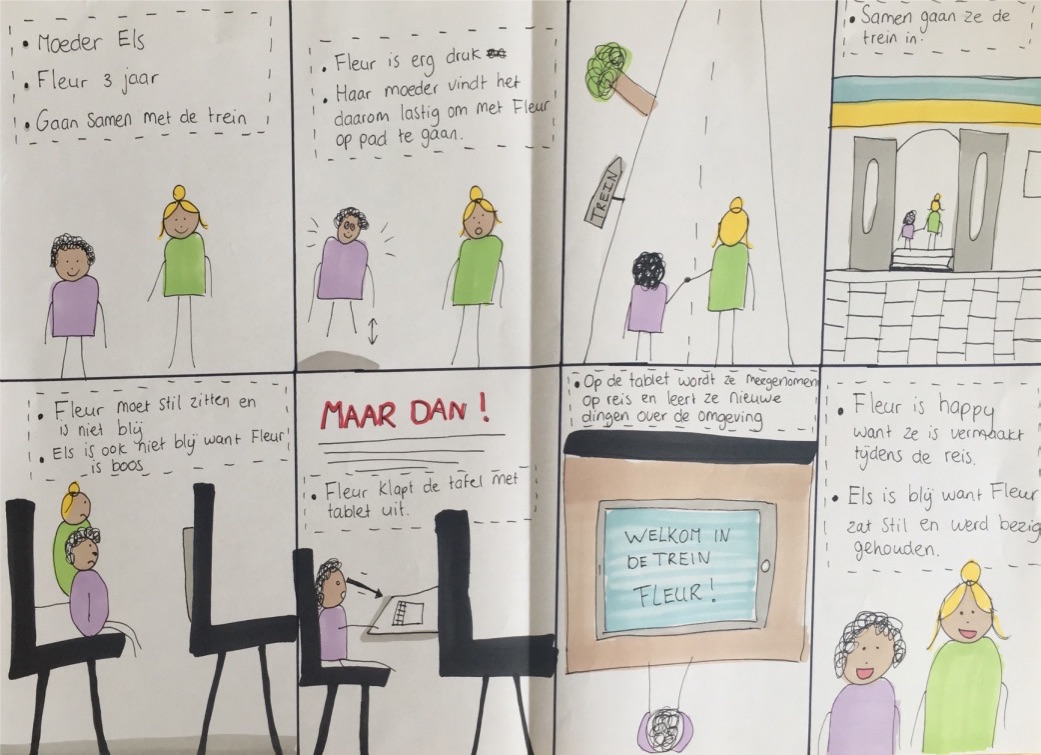 • Moeder Els
• Fleur 3 jaar
• Gaan samen met de trein
• Fleur is erg druk
• Haar moeder vindt het
daarom lastig om met Fleur
op pad te gaan.
TREIN
• Samen gaan ze de
trein in.
• Fleur moet stil zitten en
is niet blij
• Els is ook niet blij want Fleur
is boos
MAAR DAN!
• Fleur klapt de tafel met
tablet uit.
• Op de tablet wordt ze meegenomen
op reis en leert ze nieuwe
dingen over de omgeving
WELKOM IN
DE TREIN
FLEUR!
• Fleur is happy
want ze is vermaakt
tijdens de reis.
• Els is blij want Fleur
zat stil en werd bezig
gehouden.